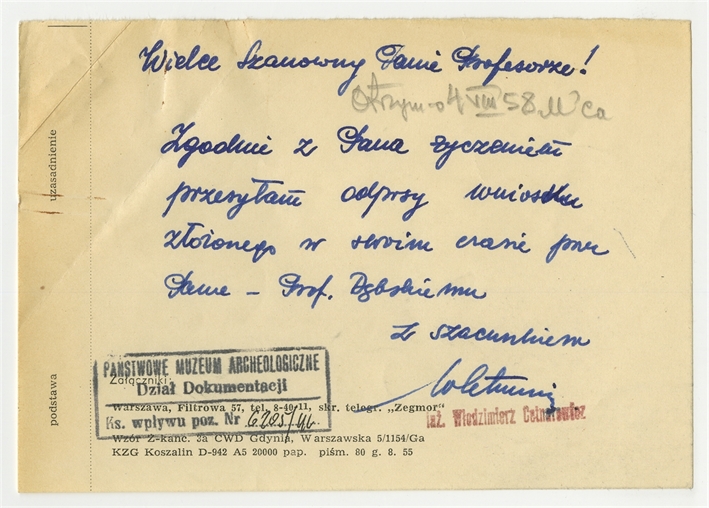 Wielce Szanowny Panie Profesorze!
Otrzym-o 4 VIII 58.
Zgodnie z Pana życzeniem
przesyłam odpisy wniosku
złożonego w swoim czasie przez
Pana – Prof. Dębskiemu
z szacunkiem
uzasadnienie
podstawa
PAŃSTWOWE MUZEUM ARCHEOLOGICZNE
Załączniki
Dział Dokumentacji
Warszawa, Filtrowa 57, tel. 8-40-11, skr. telegr. „Zegmor"
Ks. wpływu poz. Nr 6205/
inż. Włodzimierz Cetnarowicz
Wzór Z-kanc. 3a CWD Gdynia, Warszawska 5/1154/Ga
KZG Koszalin D-942 A5 20000 pap. piśm. 80 g. 8. 55